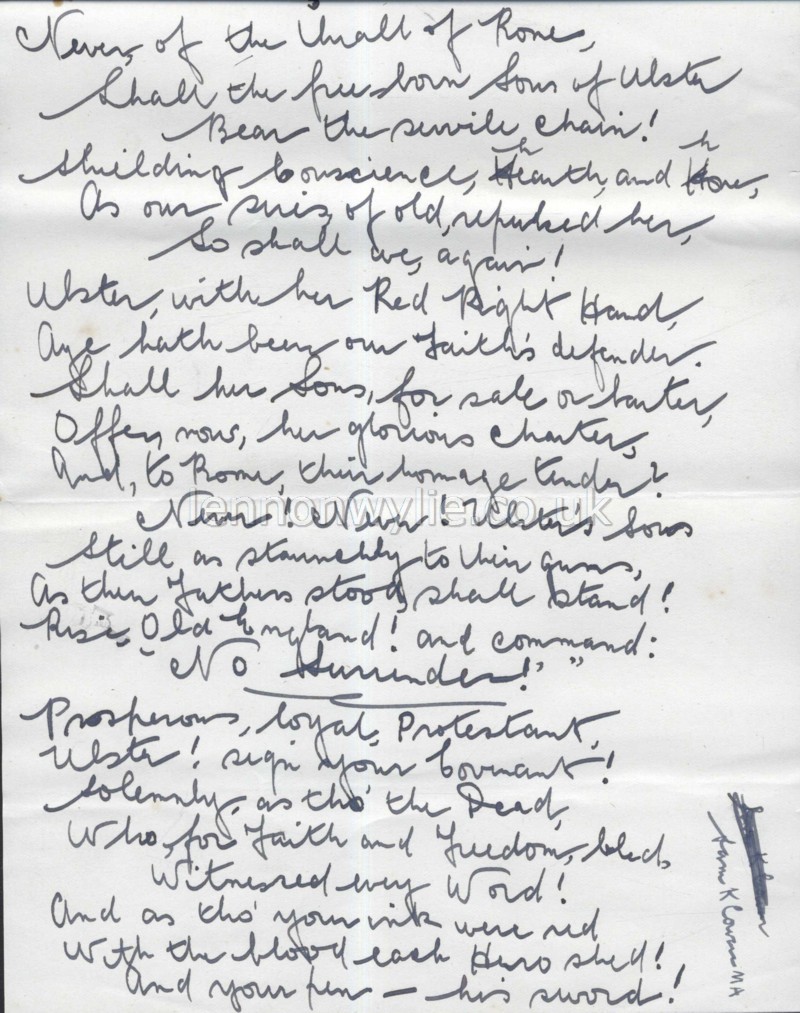 Never, of the thrall of Rome,
Shall the free-born Sons of Ulster
Bear the servile chain!
Shielding Conscience, Hearth, and Home,
As our sires, of old, repulsed her,
So shall we, again!
Ulster, with her Red Right Hand,
Aye hath been our Faith's defender.
Shall her Sons, for sale or barter,
Offer, now, her glorious Charter,
And, to Rome, their homage tender?
Never! Never! Ulster's Sons
Still, as staunchly to their guns,
As their Fathers stood, shall stand!
Rise, Old England! and command:
"No Surrender!"
Prosperous, loyal, Protestant,
Ulster! sign your Covenant!
Solemnly, as tho' the Dead,
Who, for Faith and Freedom, bled,
Witnessed every Word!
And as tho' your ink were red
With the blood each Hero shed!
And your pen – his sword!
Sam K Cowan MA
lennonwylie.co.uk